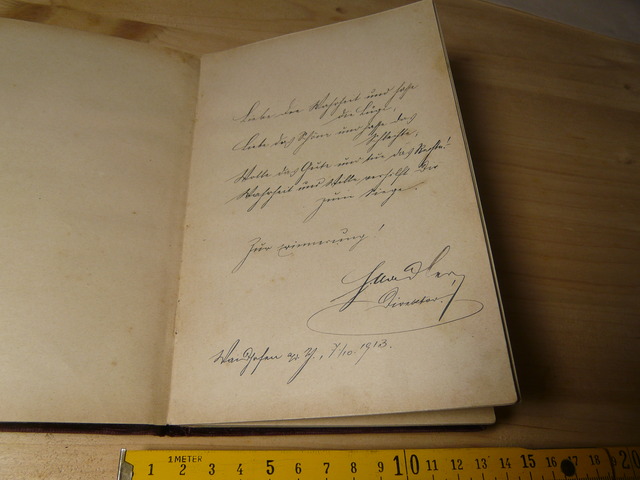 Liebe die Wahrheit und hasse
die Lüge,
Liebe das Schöne und hasse das
Schlechte,
Wolle das Gute und tue das Rechte!
Wahrheit und Wille verhilft Dir
zum Siege.
Zur Erinnerung!
Direktor.
Waidhofen a/d. Y., 7/10. 1913.
1METER
1 2 3 4 5 6 7 8 9 10 11 12 13 14 15 16 17 18 20